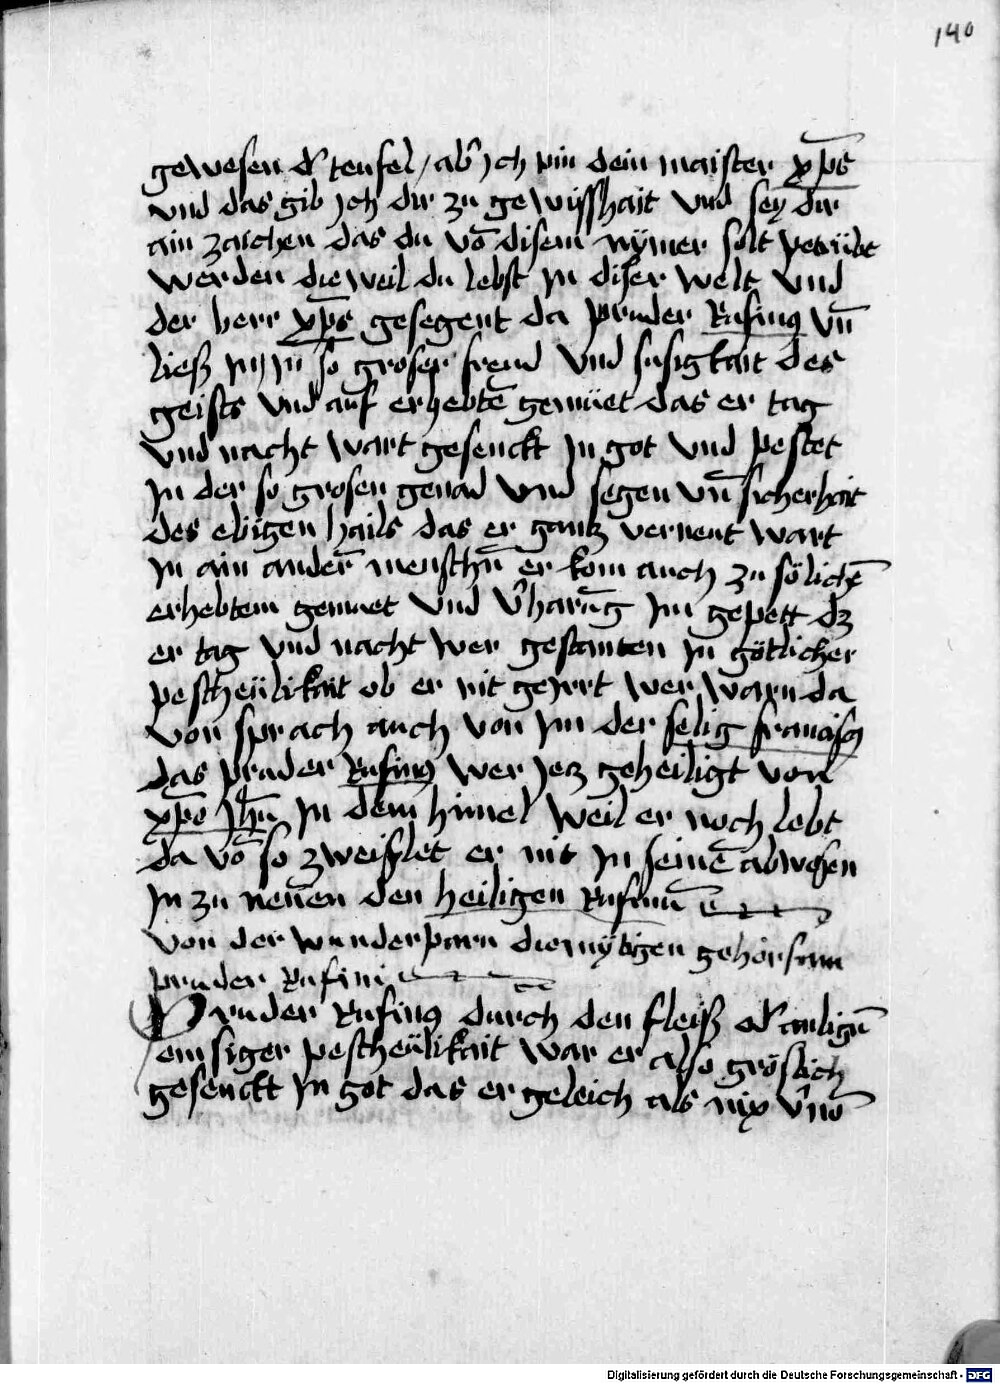 140
gewesen d' teufel / ab' jch pin dein maister xp̄s
vnd das gib jch dir zu gewisshait vnd sey dir
ain zaichen das du vō disem nymer solt petrübt
werden die weil du lebst jn diser welt vnd
der herr xp̄s gesegent da pruder Rufinꝯ vn̄
ließ jn / jn so groser freud vnd susigkait des
geists vnd auf erhebtē gemüet das er tag
vnd nacht wart gesenckt jn got vnd pestet
jn der so grosen genad vnd segen vn̄ sicherhait
des ebigen hails das er gantz verneut wart
jn ain anderñ menschn̄ er kom auch zu sölichē
erhebtem gemuet vnd v'harūg jm gepett dz
er tag vnd nacht wer gestanten jn götlicher
pescheülikait ob er nit gejrrt wer warn da
von sprach auch von jm der selig francisꝯ
das pruder Rufinꝯ wer jetz geheiligt von
xp̄o jh̄u jn dem himel weil er noch lebt
da vō so zweiflet er nit jn seinē abwesen
jn zu neñen den heiligen Rufinū
von der wunderparn diemytigen gehorsam
pruder Rufini
Pruder Rufinꝯ durch den fleiß vd' anlign̄
emsiger pescheülikait war er also gröslich
gesenckt jn got das er geleich als nix v'nō
Digitalisierung gefördert durch die Deutsche Forschungsgemeinschaft - DFG